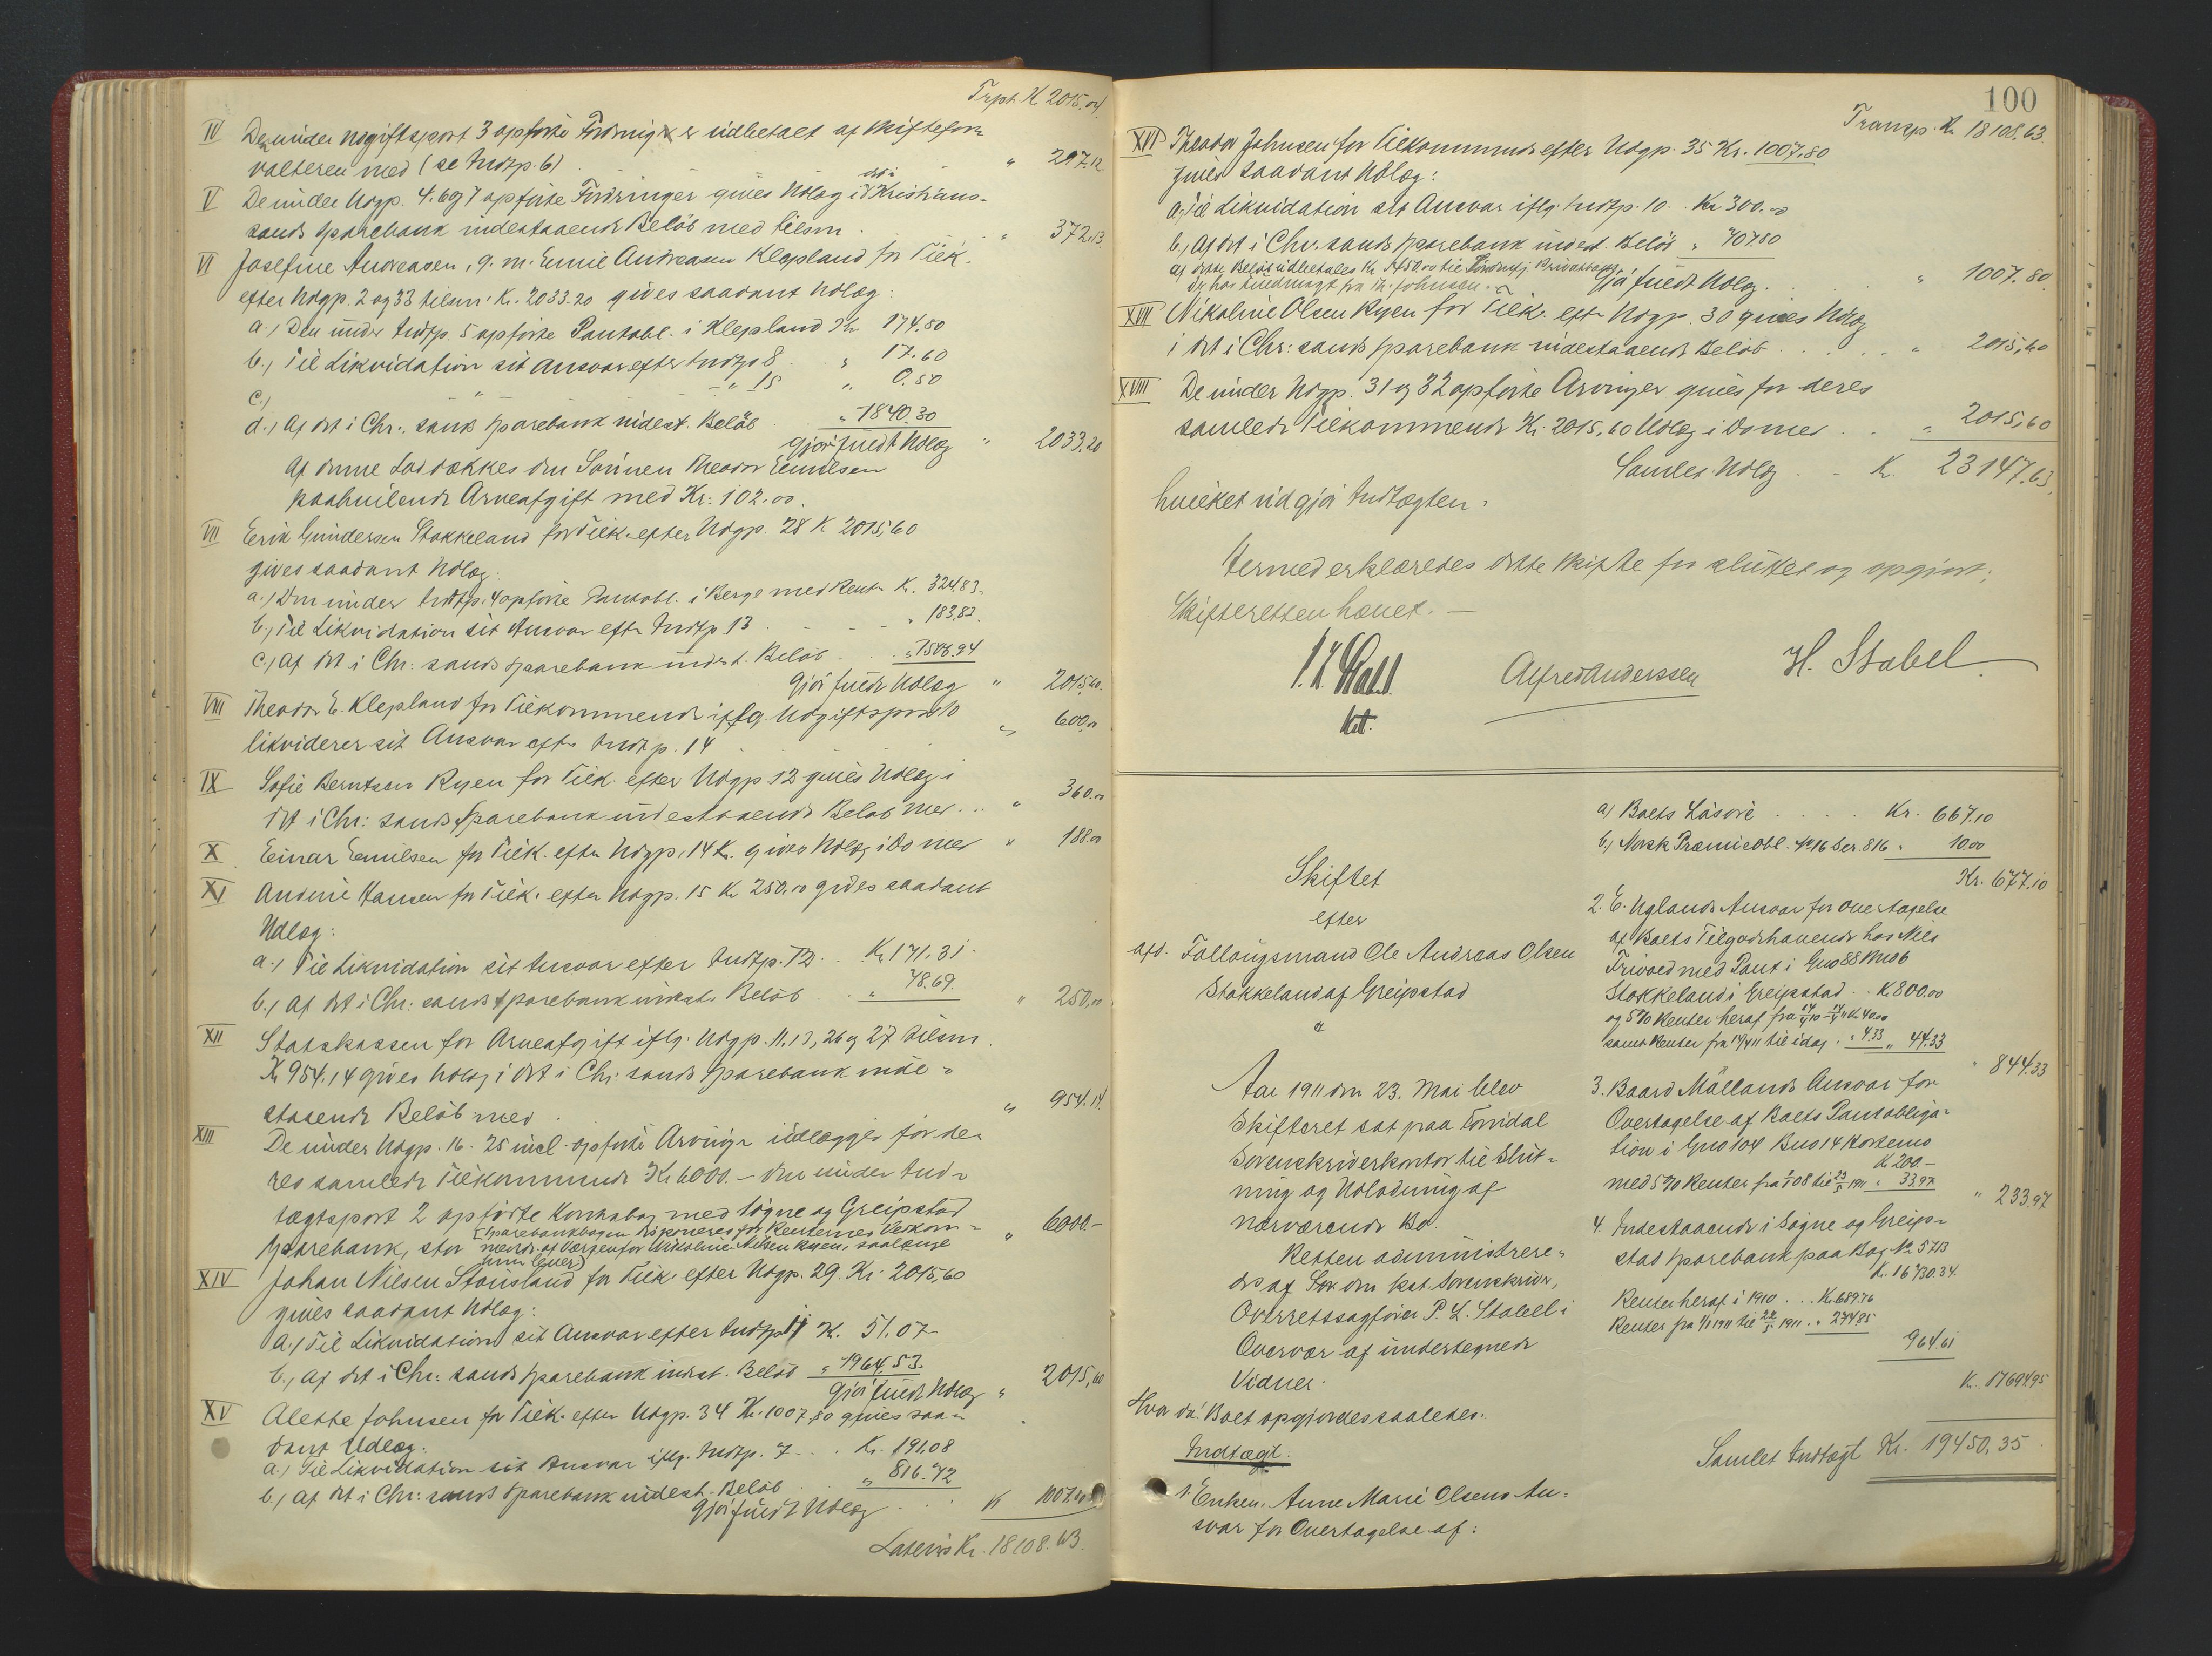 Trpt. K 2015.04
IV Den under Udgiftspost 3 opførte Fordring er udbetalt af Skiftefor-
valteren med (se Indtp. 6) " 297.12
V De under Udgp. 4. 6 og 7 opførte Fordringer gives Udlæg i det i Kristians-
sands Sparebank indestaaende Beløb med tilsm. " 372,13
VI Josefine Andreasen, g. m. Emil Andreasen Klepland for Tilk.
efter Udgp. 2 og 33 tilsm. K. 2033.20 gives saadant Udlæg:
a.) Den under Indtp. 5 opførte Pantobl. i Klepland Kr. 174.80
b.) Til Likvidation sit Ansvar efter Indtp 8 " 17.60
c.) " -"- 15 " 0.50
d.) Af det i Chr. sands Sparebank indest. Beløb " 1840.30
Gjør fuldt Udlæg " 2033.20
Af denne Lod dækkes den Sønnen Theodor Emilsen
paahvilende Arveafgift med Kr. 102.00.
VII Erik Gundersen Stokkeland for Tilk. efter Udgp. 28 K 2015,60
gives saadant Udlæg:
a.) Den under Indtp. 4 opførte Pantobl. i Berge med Rente K. 324.83.
b.) Til Likvidation sit Ansvar eftr Indtp 13 " 183,83.
c.) Af det i Chr: sands Sparebank indest. Beløb " 1506.94
Gjør fuldt Udlæg " 2015,60.
VIII Theodor E. Klepland for Tilkommende iflg. Udgiftspost 10
likviderer sit Ansvar efter Indtp. 14 " 600,00
IX Sofie Berntsen Ryen for Tilk. efter Udgp 12 gives Udlæg i
det i Chr: sands Sparebank indestaaende Beløb med ... " 360.00
X Einar Emilsen for Tilk. efter Udgp. 14 K. gives Udlæg i Do med " 188.00
XI Andine Hansen for Tilk. efter Udgp. 15 K 250.00 gives saadant
Udlæg:
a.) Til Likvidation sit Ansvar efter Indtp. 12. K. 171.31.
b.) Af det i Chr: sands Sparebank indest. Beløb " 78.69. " 250,00
XII Statskassen for Arveafgift iflg. Udgp. 11. 13, 26 og 27 tilsm.
K 954.14 gives Udlæg i det i Chr: sands Sparebank inde-
staaende Beløb med. " 954.14.
XIII De under Udgp. 16 - 25 incl. opførte Arvinger udlægges for de-
res samlede Tilkommende K. 6000.- den under Ind-
tægtspost 2 opførte Kontrabog med Søgne og Greipstad
Sparebank, stor " 6000.-
[Sparebankbogen disponeres for Renternes Vedkom-
mende af Værgen for Nikoline Nilsen Ryen, saalænge
hun lever]
XIV Johan Nilsen Stousland for Tilk. efter Udgp. 29. Kr. 2015,60
gives saadant Udlæg:
a.) Til Likvidation sit Ansvar efter Indtp 11 K. 51.07
b.) Af det i Chr: sands Sparebank indest. Beløb " 1964.53.
Gjør fuldt Udlæg " 2015,60
XV Alette Johnsen for Tilk. efter Udgp. 34 Kr. 1007,80 gives saa-
dant Udlæg:
a.) Til Likvidation sit Ansvar iflg. Indtp. 7 ... K. 191,08
b.) Af det i Chr: sands Sparebank indest. Beløb " 816.72
Gjør fuldt Udlæg ... K 1007.80
Lateris Kr. 18108.63.
100
Transp. Kr 18108.63.
XVI Theodor Johnsen for Tilkommende efter Udgp. 35 Kr. 1007.80
gives saadant Udlæg:
a.) Til Likvidation sit Ansvar iflg. Indtp. 10. Kr 300.00
b.) Af det i Chr. sands Sparebank indest. Beløb " 707.80
Gjør fuldt Udlæg. " 1007.80
XVII Nikoline Olsen Ryen for Tilk. eftr Udgp. 30 gives Udlæg
i det i Chr: sands Sparebank indestaaende Beløb ..... " 2015,60
XVIII De under Udgp. 31 og 32 opførte Arvinger gives for deres
samlede Tilkommende K. 2015,60 Udlæg i Do med .. " 2015,60
Samlet Udlæg .. K. 23147.63.
hvilket udgjør Indtægten.
Hermed erklæredes dette Skifte for sluttet og opgjort;
Skifteretten hævet. —
Alfred Anderssen
H. Stabel
kst.
Skiftet
efter
afd. Føllougsmand Ole Andreas Olsen
Stokkeland af Greipstad
Aar 1911 den 23. Mai blev
Skifteret sat paa Torridal
Sorenskriverkontor til Slut-
ning og Udlodning af
nærværende Bo.
Retten administrere-
des af den kst. Sorenskriver,
Overretssagfører P. L. Stabell i
Overvær af undertegnede
Vidner.
Hvorda: Boet opgjordes saaledes:
Indtægt:
1. Enken, Anne Marie Olsens An-
svar for Overtagelse af:
a) Boets Løsøre ..... Kr. 667.10
b.) Norsk Præmieobl. No 16 Ser. 816 " 10.00
Kr. 677.10
2. E. Uglands Ansvar for Overtagelse
af Boets Tilgodehavende hos Nils
Trivoed med Pant i Gno 88 Bno 6
Stokkeland i Greipstad .. K 800.00
og 5% Renter heraf fra 14/4 10 - 14/4 11 K 40.00
samt Renter fra 14/4 11 til idag. " 4.33 " 44.33
" 844.33
3. Baard Møllands Ansvar for
Overtagelse af Boets Pantobliga-
tion i Gno 104 Bno 14
K. 200.-
med 5% Renter fra 1/1 08 til 23/5 1911 " 33,97
" 233.97
4. Indestaaende i Søgne og Greip-
stad Sparebank paa Bog No 5713
K. 16730.34.
Renter heraf i 1910 ... K. 689.76
Renter fra 1/1 1911 til 22/5 1911 .. " 274.85
964.61
K. 17694.95
Samlet Indtægt Kr. 19450,35.